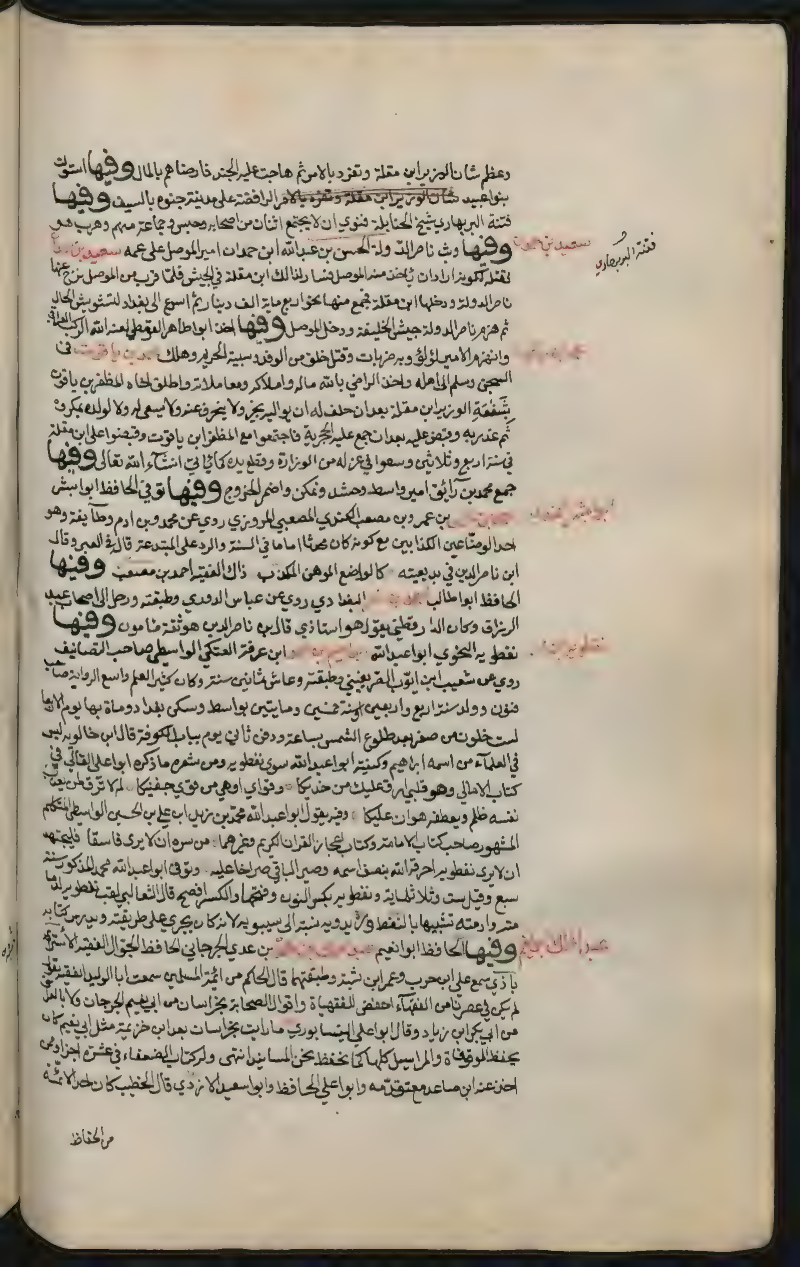 وعظم شان الوزير ابن مقلة وتفرد بالامر ثم هاجت عليه الجند فارضاهم بالمال وفيها استولت
بنوا عبيد الرافضة على مدينة جنوه بالسيف وفيها
فتنة البربهاري شيخ الحنابلة فنودي ان لا يجتمع اثنان من اصحابه وحبس جماعة منهم وهرب هو
فتنة البربهاري
سعيد بن حمدان
وفيها وثب ناصر الدولة الحسن بن عبد الله ابن حمدان امير الموصل على عمه سعيد بن
فقتله لكونه اراد ان ياخذ منه الموصل فسار لذلك ابن مقلة في الجيش فلما قرب من الموصل نزح عنها
ناصر الدولة ودخلها ابن مقلة فجمع منها نحو اربع ماية الف دينار ثم اسرع الى بغداد لتشويش الحال
ثم هزم ناصر الدولة جيش الخليفة ودخل الموصل وفيها اخذ ابو طاهر القرمطي لعنه الله الركب العراقي
وانهزم الامير لؤلؤ وبه ضربات وقتل خلق من الوفد وسبية الحريم وهلك محمد بن ياقوت في
السجن وسلم الى اهله واخذ الراضي بالله ماله واملاكه ومعاملاته واطلق اخاه المظفر بن ياقوت
بشفعة الوزير ابن مقلة بعد ان حلف له ان يواليه بخير ولا ينحرف عنه ولا يسعى له ولا لولده بمكروه
ثم غدر به وقبض عليه بعد ان جمع عليه الحجرية فاجتمعوا مع المظفر ابن ياقوت وقبضوا على ابن مقلة
في سنة اربع وثلاثين وسعوا في عزله من الوزارة وقطع يده كما ياتي انشاء الله تعالى وفيها
جمع محمد بن رائق امير واسط وحشد وتمكن واضمر الخروج وفيها توفي الحافظ ابو بشر
بن عمرو بن مصعب الكندي المصعبي المروزي روي عن محمود بن ادم وطايفة وهو
احد الوضاعين الكذابين مع كونه كان محدثا اماما في السنة والرد على المبتدعة قاله في العبر وقال
ابن ناصر الدين في بديعيته كالواضع الموهن المكذب ذاك الفقيه احمد بن مصعب وفيها
الحافظ ابو طالب البغدادي روى عن عباس الدوري وطبقته ورحل الى اصحاب عبد
الرزاق وكان الدارقطني يقول هو استاذي قال بن ناصر الدين هو ثقة مامون وفيها
نفطويه النحوي ابو عبد الله ابراهيم بن محمد ابن عرفة العتكي الواسطي صاحب التصانيف
روي عن شعيب ابن ايوب الصريفيني وطبقته وعاش ثمانين سنة وكان كثير العلم واسع الرواية صاحب
فنون وولد سنة اربع واربعين وماتيين بواسط وسكن بغداد ومات بها يوم الاربعا
لست خلون من صفر بعد طلوع الشمس بساعة ودفن ثاني يوم بباب الكوفة قال ابن خالويه ليس
في العلماء من اسمه ابراهيم وكنيته ابو عبد الله سوي نفطويه ومن شعره ما ذكره ابو علي القالي في
كتاب الامالي وهو قلبي ارق عليك من خديكا وقواي اوهي من قوي جفنيكا لم لا ترق لمن يعذب
نفسه ظلما ويعطفه هواه عليكا وفيه يقول ابو عبد الله محمد بن زيد ابن علي بن الحسين الواسطي المتكلم
المشهور صاحب كتاب الامامة وكتاب اعجاز القران الكريم وغيرهما من سره ان لا يرى فاسقا فليجتهد
ان لا يرى نفطويه احرقه الله بنصف اسمه وصير الباقي صراخا عليه وتوفي ابو عبد الله محمد المذكور سنة
سبع وقيل ست وثلاثماية ونفطويه بكسر النون وفتحها والكسر افصح قال الثعالبي لقب نفطويه
وادمته تشبيها بالنفط وزيد ويه نسبة الى سيبويه لانه كان يجري على طريقته ويدرس كتابه
وفيها الحافظ ابو نعيم عبد الملك بن محمد بن عدي الجرجاني الحافظ الجوال الفقيه
سمع علي ابن حرب وعمر ابن شبة وطبقتهما قال الحاكم من ائمة المسلمين سمعت ابا الوليد الفقيه يقول
لم يكن في عصرنا من الفقهاء احفظ للفقهيات واقوال الصحابة بخراسان من ابي نعيم الجرجاني ولا بالعراق
من ابي بكر ابن زياد وقال ابو علي النيسابوري ما رايت بخراسان بعد ابن خزيمة مثل ابي نعيم كان
يحفظ الموقوفات والمراسيل كلها كما نحفظ نحن المسانيد انتهى وله كتاب الضعفاء في عشرة اجزا وممن
اخذ عنه ابن صاعد مع تقدمه وابو علي الحافظ وابو سعيد الازدي قال الخطيب كان احد الائمة
من الحفاظ